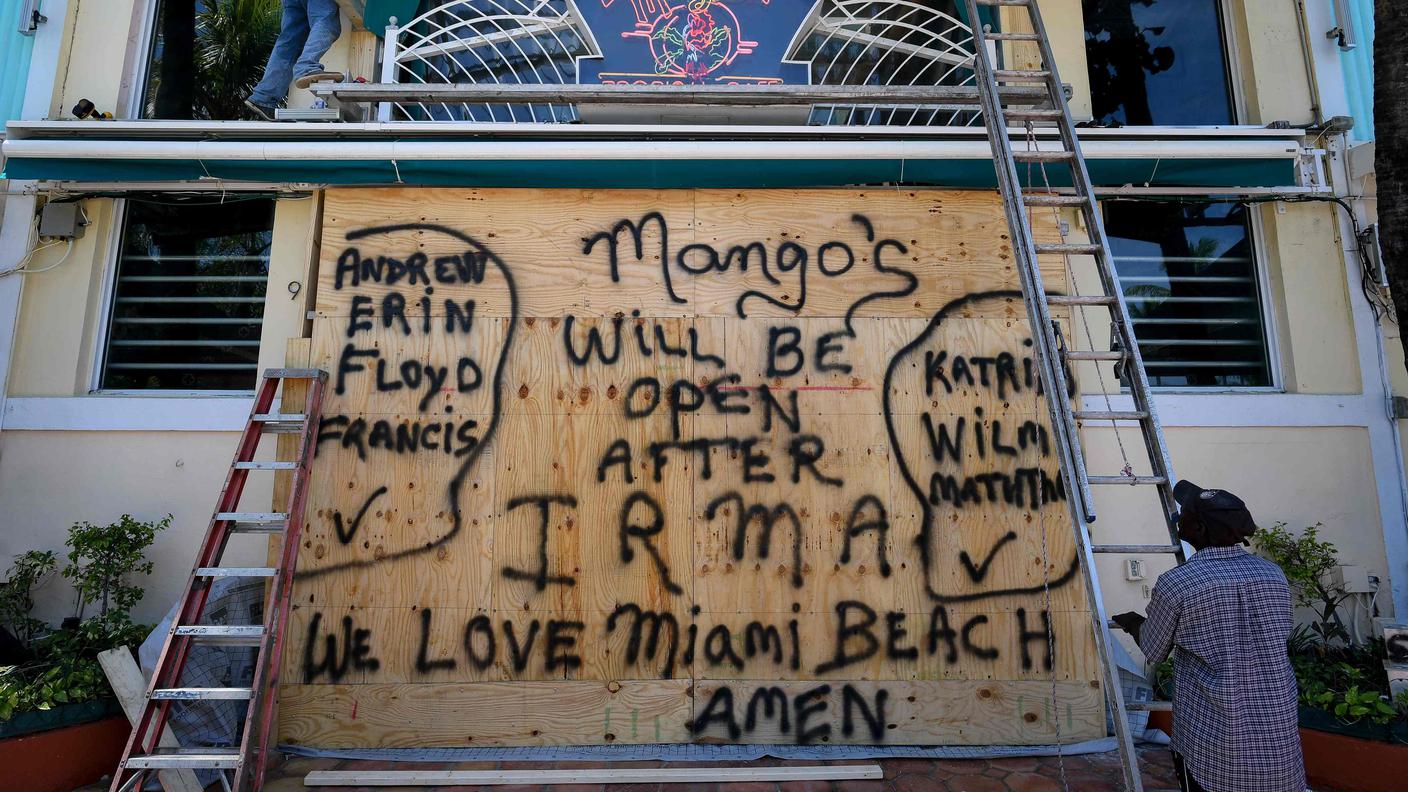 ANDREW
ERIN
FLOYD
FRANCIS
✓
9
Mango's
WILL BE
OPEN
AFTER
IRMA
KATRI
WILM
✓
WE LOVE Miami BEACH
AMEN